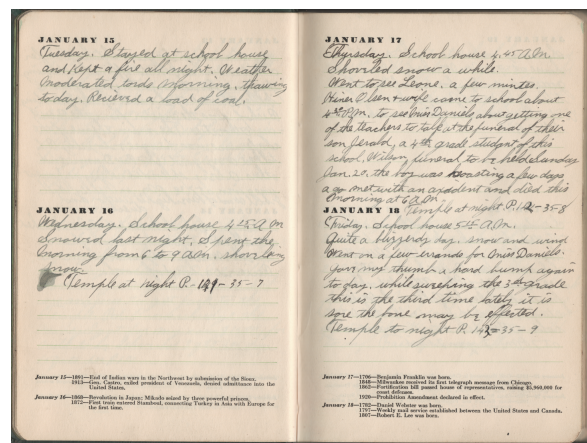 JANUARY 15
Tuesday. Stayed at school house
and Kept a fire all night. Weather
Moderated tords Morning. thawing
today. Recievd a load of Coal.
JANUARY 16
Wednesday. School house 4:45 A.M
Snowed last night. Spent the
Morning from 6 to 9 A.M. shovling
snow.
Temple at night P. 149-35-7
January 15—1891—End of Indian wars in the Northwest by submission of the Sioux.
1913—Gen. Castro, exiled president of Venezuela, denied admittance into the
United States.
January 16—1868—Revolution in Japan; Mikado seized by three powerful princes.
1872—First train entered Stamboul, connecting Turkey in Asia with Europe for
the first time.
JANUARY 17
Thursday. School house 4.45 A.M.
Shovled snow a while.
Went to see Leone. a few mintes.
Olsen + wife came to school about
4 P.M. to see Miss Daniels about getting one
of the teachers to talk at the funeral of their
son Jerald, a 4th grade student of this
school, Wilson, funeral to be held Sunday
Jan. 20, the boy was coasting a few days
a go met with an accident and died this
Morning at 6 A.M.
Temple at night. P. 35-8
JANUARY 18
Friday. School house 5 A.M.
Quite a blizzerdy day. snow and wind
Went on a few errands for Miss Daniels.
my thumb a hard bump again
to day. while the 3rd grade
this is the third time lately it is
sore the bone may be effected.
Temple to night P. 35-9
January 17—1706—Benjamin Franklin was born.
1848—Milwaukee received its first telegraph message from Chicago.
1862—Fortification bill passed house of representatives, raising $5,960,000 for
coast defenses.
1920—Prohibition Amendment declared in effect.
January 18—1782—Daniel Webster was born.
1797—Weekly mail service established between the United States and Canada.
1807—Robert E. Lee was born.